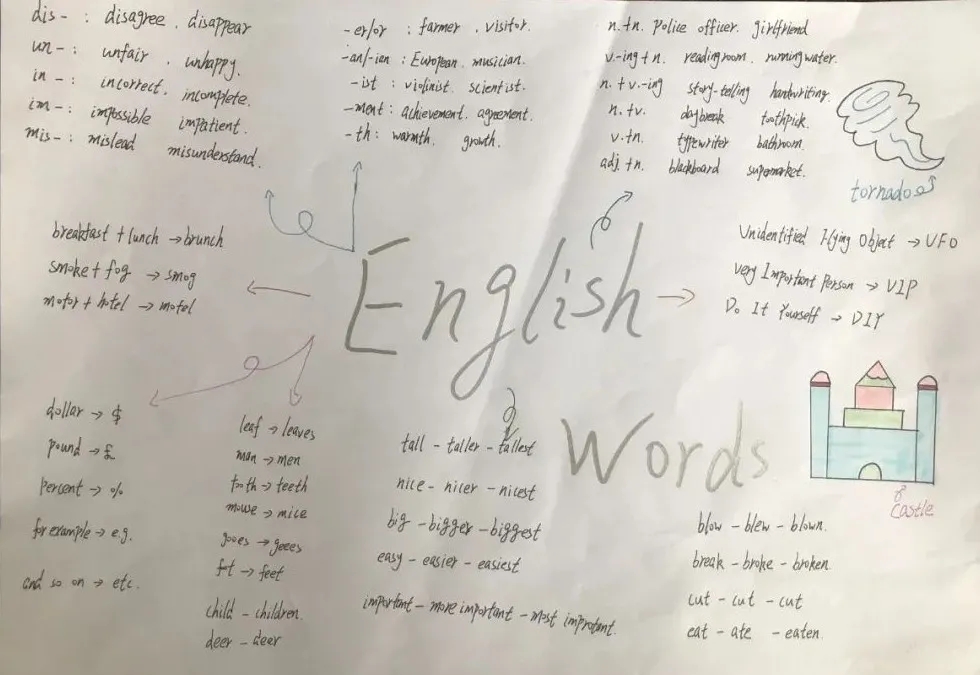 dis- : disagree . disappear
un- : unfair . unhappy.
in- : incorrect. incomplete.
im- : impossible impatient.
mis- : mislead misunderstand.
-er/or : farmer . visitor.
-an/-ian : European. musician.
-ist : violinist. scientist.
-ment : achievement. agreement.
-th : warmth. growth.
n. +n. police officer. girlfriend
v.-ing + n. reading room. running water.
n. + v.-ing story-telling handwriting.
n. +v. daybreak toothpick.
v. +n. typewriter bathroom.
adj. +n. blackboard supermarket.
tornado
breakfast + lunch → brunch
smoke + fog → smog
motor + hotel → motel
English
Words
Unidentified Flying Object → UFO
very Important Person → VIP
Do It Yourself → DIY
dollar → $
pound → £
percent → %
for example → e.g.
and so on → etc.
leaf → leaves
man → men
tooth → teeth
→ mice
→
→ feet
child - children.
deer - deer
tall - taller - tallest
nice - nicer - nicest
big - bigger - biggest
easy - easier - easiest
important - more important - most improtant.
Castle
blow - blew - blown.
break - broke - broken
cut - cut - cut
eat - ate - eaten.